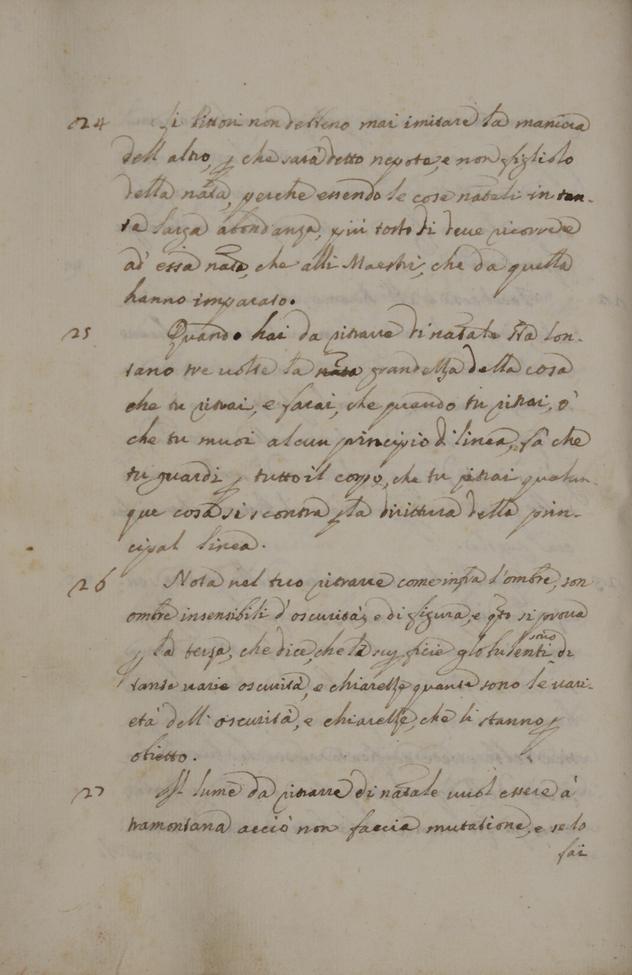 24 Li Pittori non devono mai imitare la maniera
dell altro, p che sarà detto nepote, e non figliolo
della nata, perche essendo le cose natali in tan-
ta larga abondanza, più tosto si deve ricorrere
ad essa nata, che alli Maestri, che da quella
hanno imparato.
25 Quando hai da ritrarre di natale sta lon-
tano tre volte la grandezza della cosa
che tu ritrai, e farai, che quando tu ritrai, ò
che tu muovi alcun principio di linea, fà che
tu guardi p tutto il corpo, che tu ritrai qualun-
que cosa si scontra p la dirittura della prin-
cipal linea.
26 Nota nel tuo ritrarre come infra l'ombre, son
ombre insensibili d'oscurità, e di figura, e qto si prova
p la terza, che dice, che la supficie globulenti sono di
tante varie oscurità, e chiarezze quante sono le vari-
età dell' oscurità, e chiarezze, che li stanno p
obietto.
27 Il lume da ritrarre di natale vuol essere à
tramontana acciò non faccia mutatione, e se lo
fai